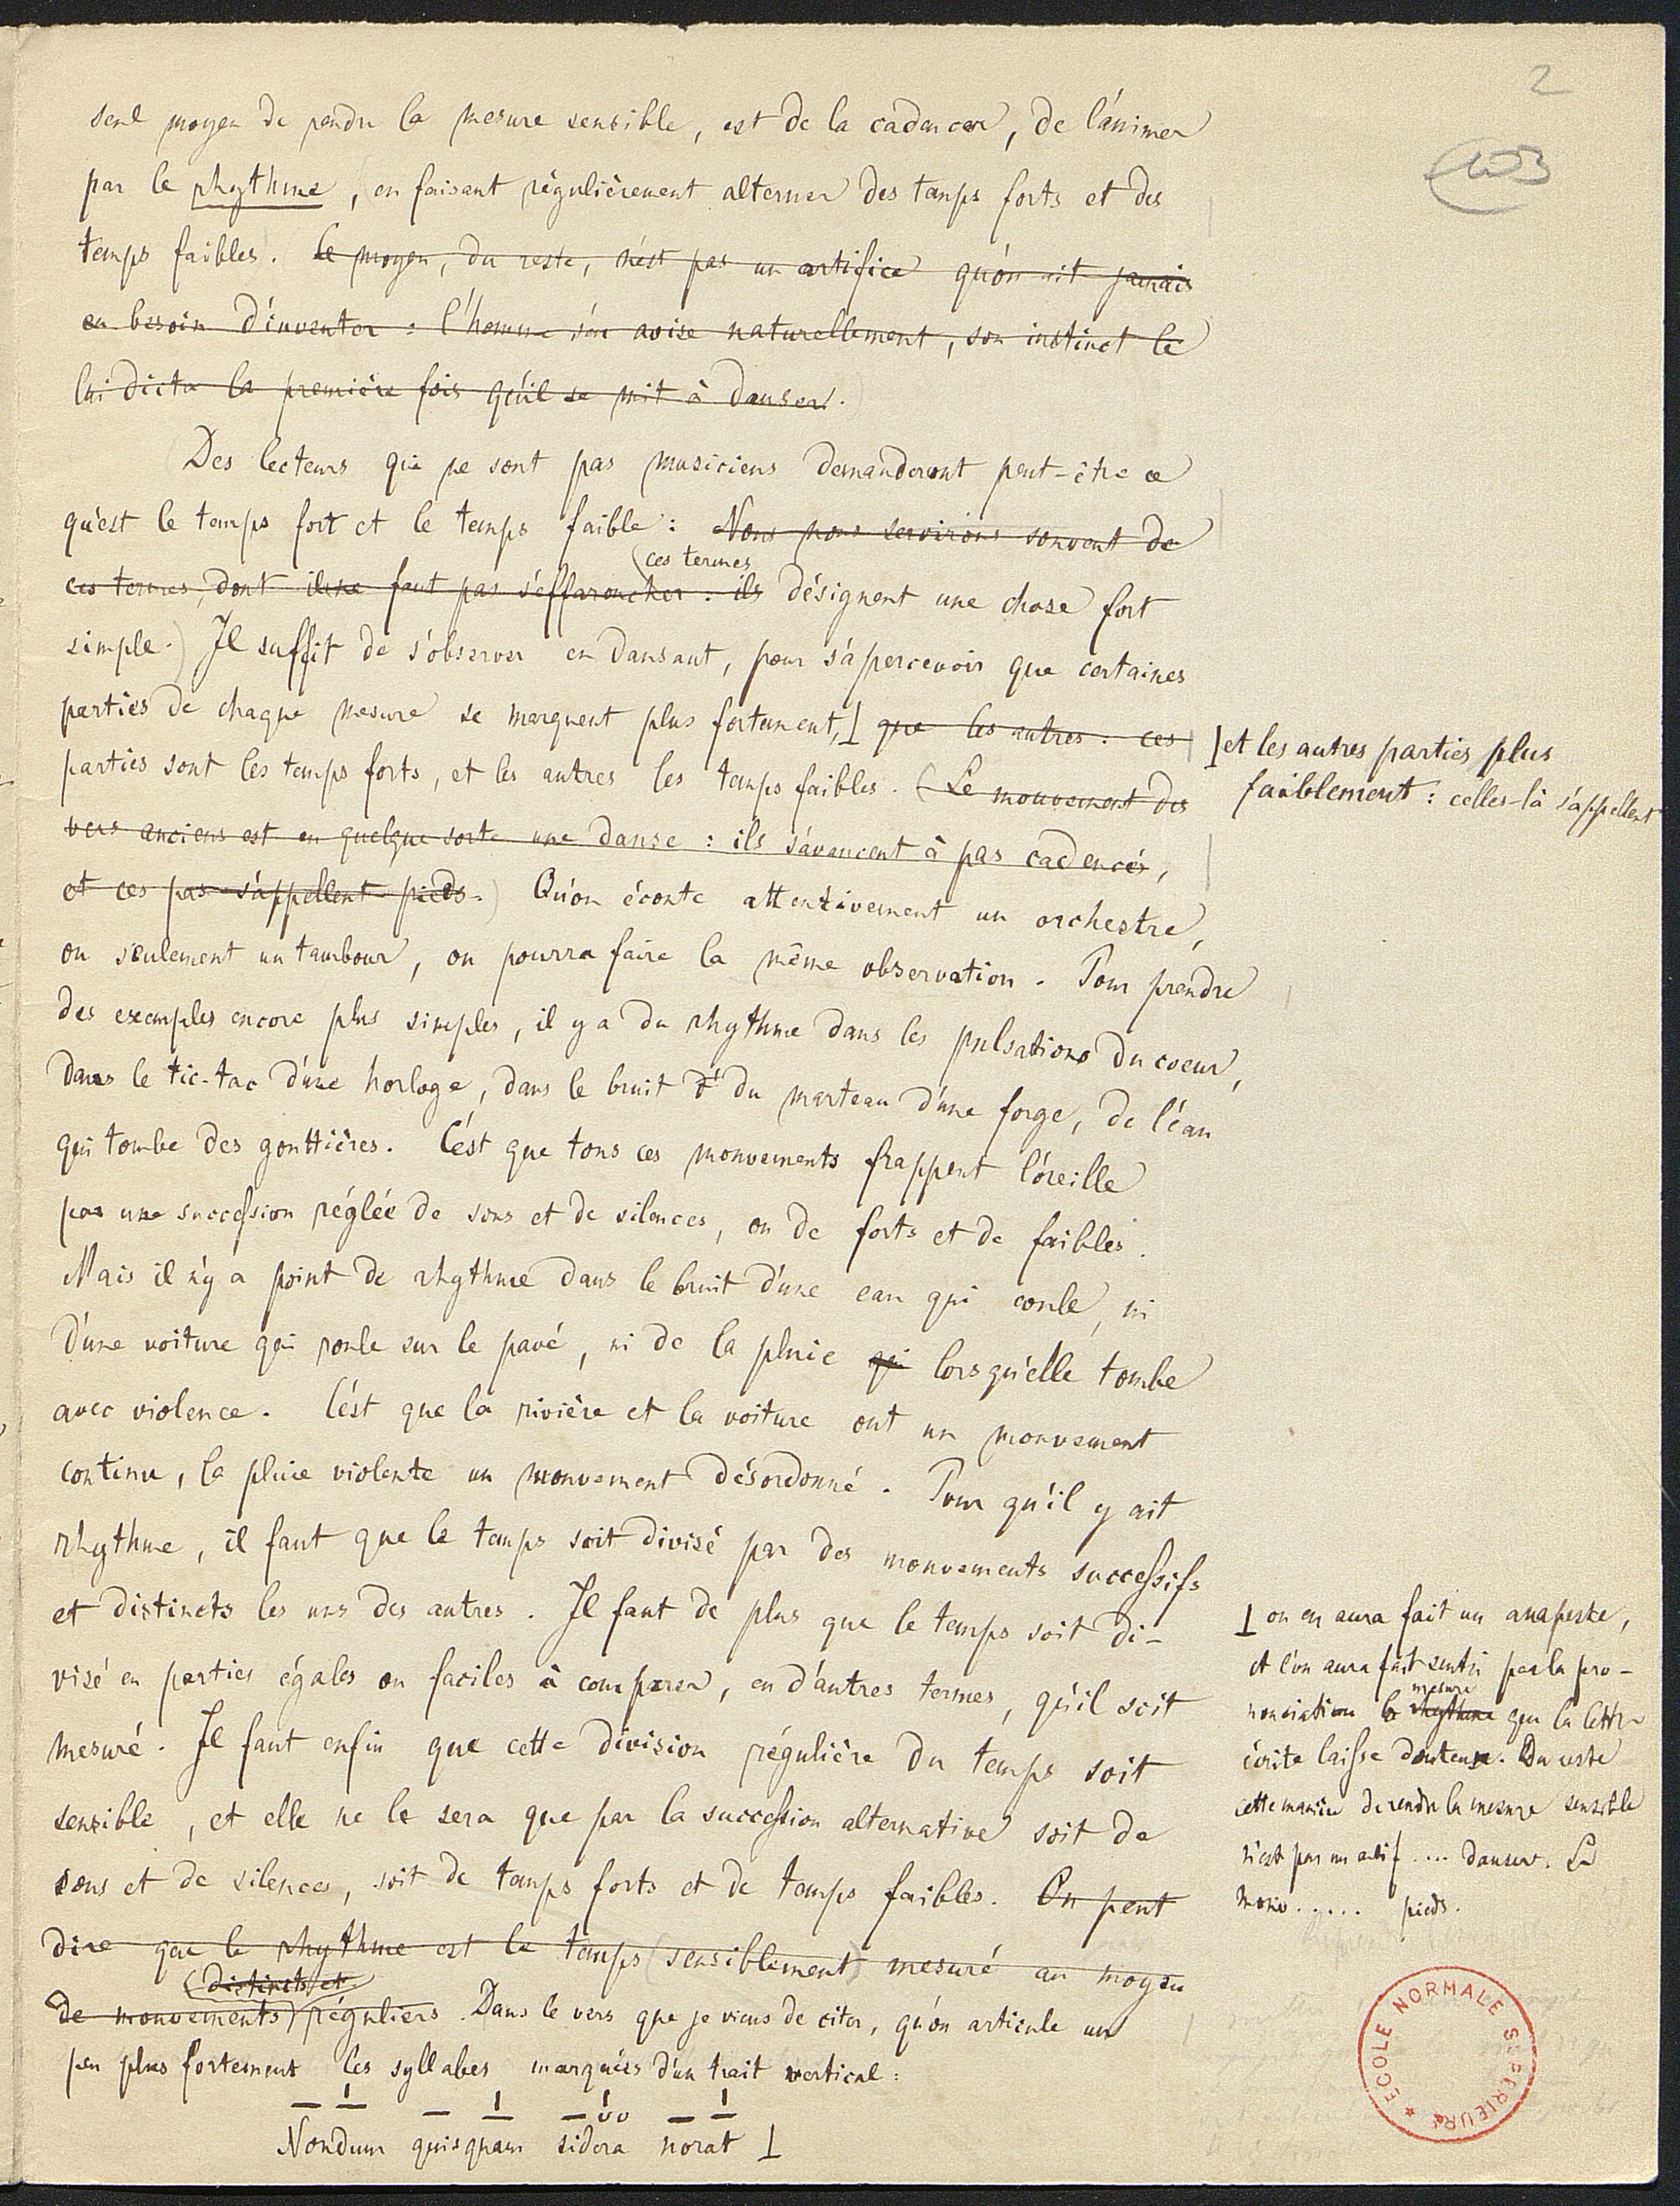 2
103
seul moyen de rendre la mesure sensible, est de la cadencer, de l'animer
par le rhythme, en faisant régulièrement alterner des temps forts et des
temps faibles. Ce moyen, du reste, n'est pas un artifice qu'on ait jamais
eu besoin d'inventer : l'homme s'en avise naturellement, son instinct le
lui dicta la première fois qu'il se mit à danser.
Des lecteurs qui ne sont pas musiciens demanderont peut-être ce
qu'est le temps fort et le temps faible : Nous nous servirons souvent de
(ces termes
ces termes, dont il ne faut pas s'effaroucher : ils désignent une chose fort
simple.) Il suffit de s'observer en dansant, pour s'apercevoir que certaines
parties de chaque mesure se marquent plus fortement, ⊥ que les autres : ces
⊥ et les autres parties plus
faiblement : celles-là s'appellent
parties sont les temps forts, et les autres les temps faibles. (Le mouvement des
vers anciens est en quelque sorte une danse : ils s'avancent à pas cadencés,
et ces pas s'appellent pieds.) Qu'on écoute attentivement un orchestre,
ou seulement un tambour, on pourra faire la même observation. Pour prendre
des exemples encore plus simples, il y a du rhythme dans les pulsations du coeur,
dans le tic-tac d'une horloge, dans le bruit d' du marteau d'une forge, de l'eau
qui tombe des gouttières. C'est que tous ces mouvements frappent l'oreille
par une succession réglée de sons et de silences, ou de forts et de faibles.
Mais il n'y a point de rhythme dans le bruit d'une eau qui coule, ni
d'une voiture qui roule sur le pavé, ni de la pluie qui lorsqu'elle tombe
avec violence. C'est que la rivière et la voiture ont un mouvement
continu, la pluie violente un mouvement désordonné. Pour qu'il y ait
rhythme, il faut que le temps soit divisé par des mouvements successifs
et distincts les uns des autres. Il faut de plus que le temps soit di-
visé en parties égales ou faciles à comparer, en d'autres termes, qu'il soit
mesuré. Il faut enfin que cette division régulière du temps soit
sensible, et elle ne le sera que par la succession alternative soit de
sons et de silences, soit de temps forts et de temps faibles. On peut
dire que le rhythme est le temps (sensiblement) mesuré au moyen
(distincts et
de mouvements) réguliers. Dans le vers que je viens de citer, qu'on articule un
peu plus fortement les syllabes marquées d'un trait vertical :
Nondum quisquam sidera norat ⊥
⊥ on en aura fait un anapeste,
et l'on aura fait sentir par la pro-
mesure
nonciation le rhythme que la lettre
écrite laisse douteux. Du reste
cette manière de rendre la mesure sensible
n'est pas un artif .... danser. Le
mouv ..... pieds.
ECOLE NORMALE SUPERIEURE